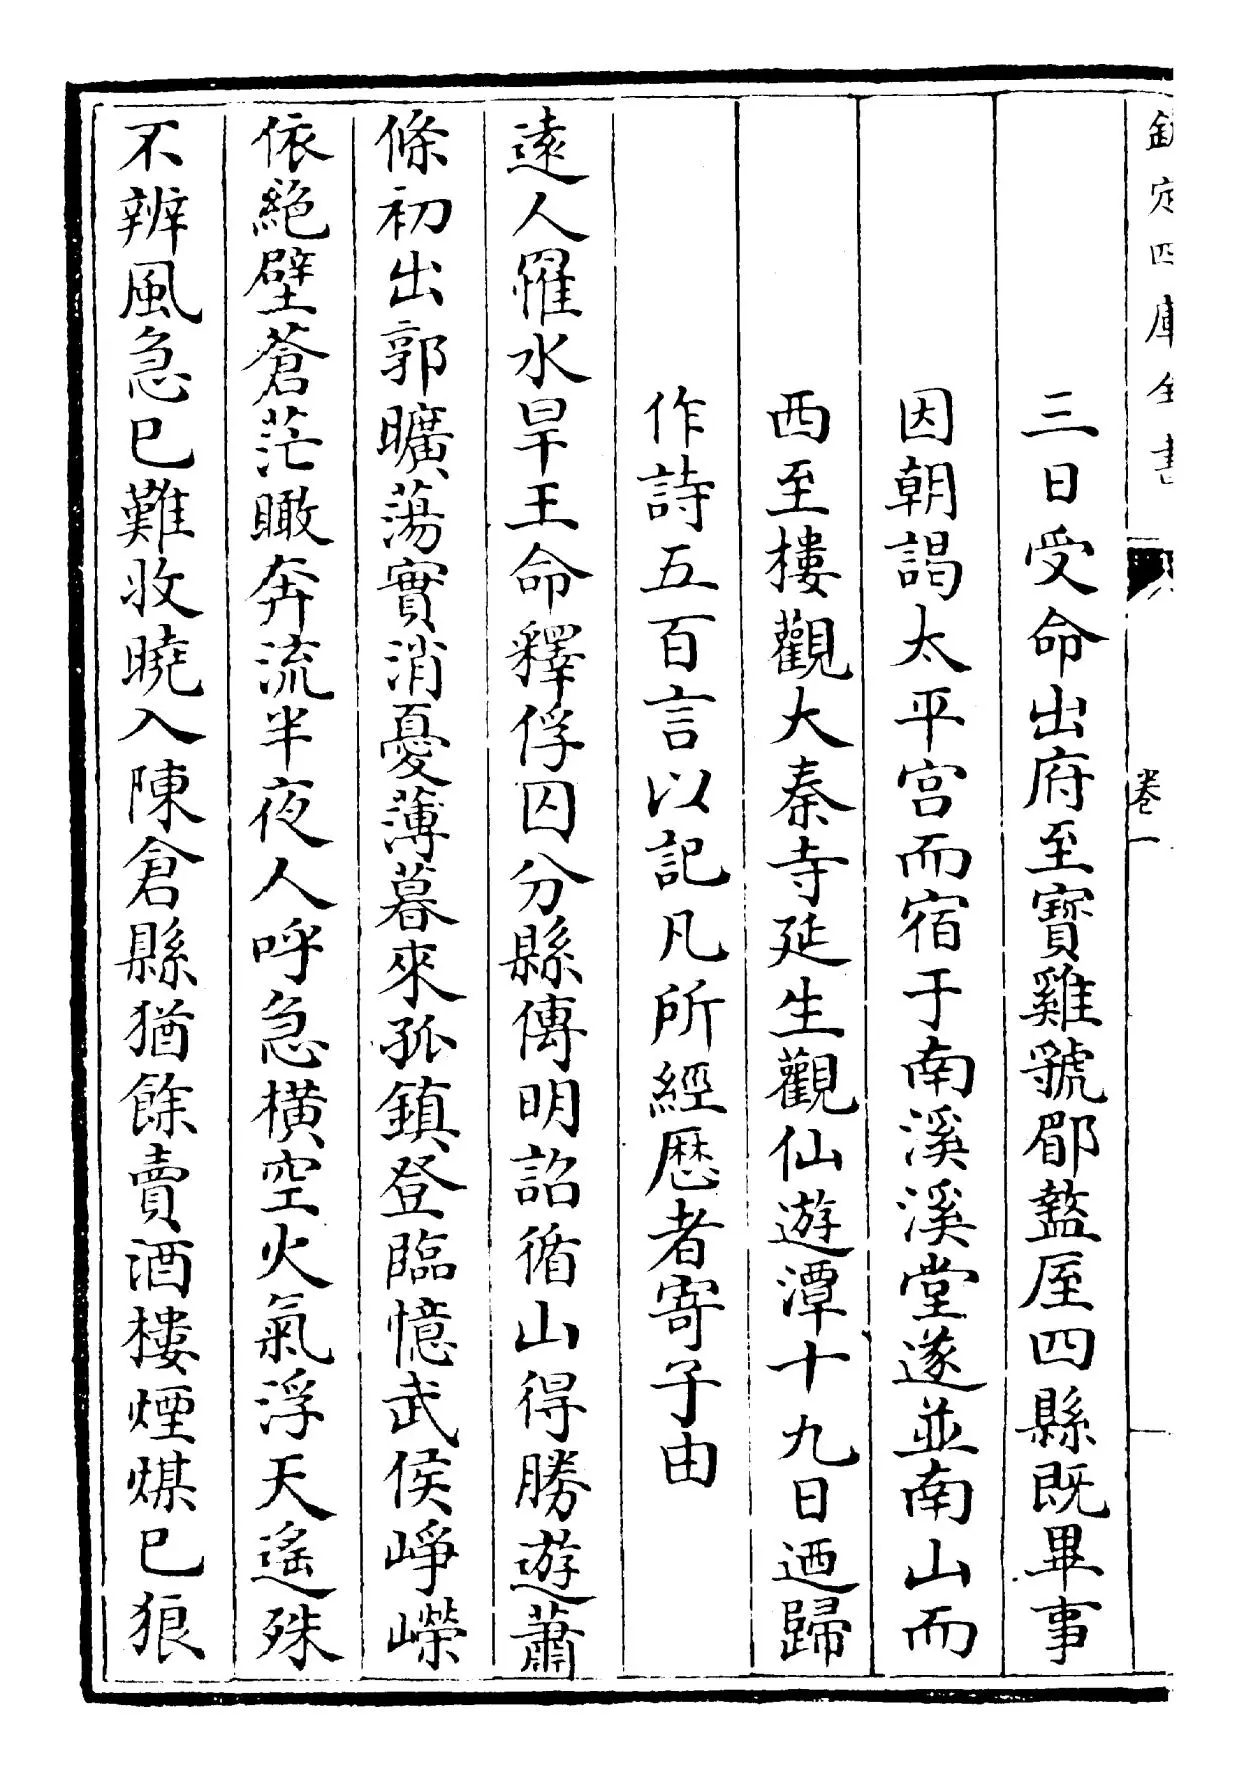 欽定四庫全書
卷一
三日受命出府至寶雞虢郿盩厔四縣既畢事
因朝謁太平宫而宿于南溪溪堂遂並南山而
西至樓觀大秦寺延生觀仙遊潭十九日迺歸
作詩五百言以記凡所經歴者寄子由
遠人罹水旱王命釋俘囚分縣傳明詔循山得勝遊蕭
條初出郭曠蕩實消憂薄暮來孤鎮登臨憶武侯崢嶸
依絶壁蒼茫瞰奔流半夜人呼急横空火氣浮天遥殊
不辨風急已難收曉入陳倉縣猶餘賣酒樓煙煤已狼